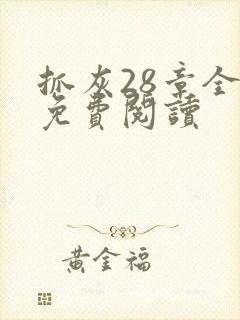 抓灰28章全
免費閱讀
黃金福